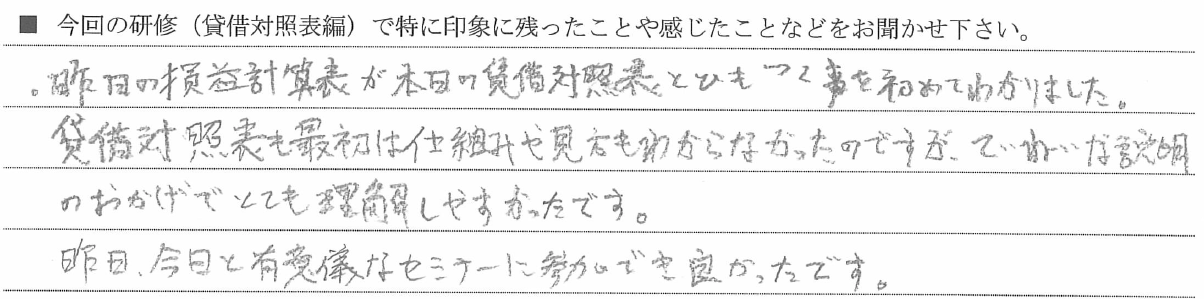 ■ 今回の研修（貸借対照表編）で特に印象に残ったことや感じたことなどをお聞かせ下さい。
。昨日の損益計算表が本日の貸借対照表とひもつく事を初めてわかりました。
貸借対照表も最初は仕組みや見方もわからなかったのですが、ていねいな説明
のおかげでとても理解しやすかったです。
昨日、今日と有意儀なセミナーに参加でき良かったです。